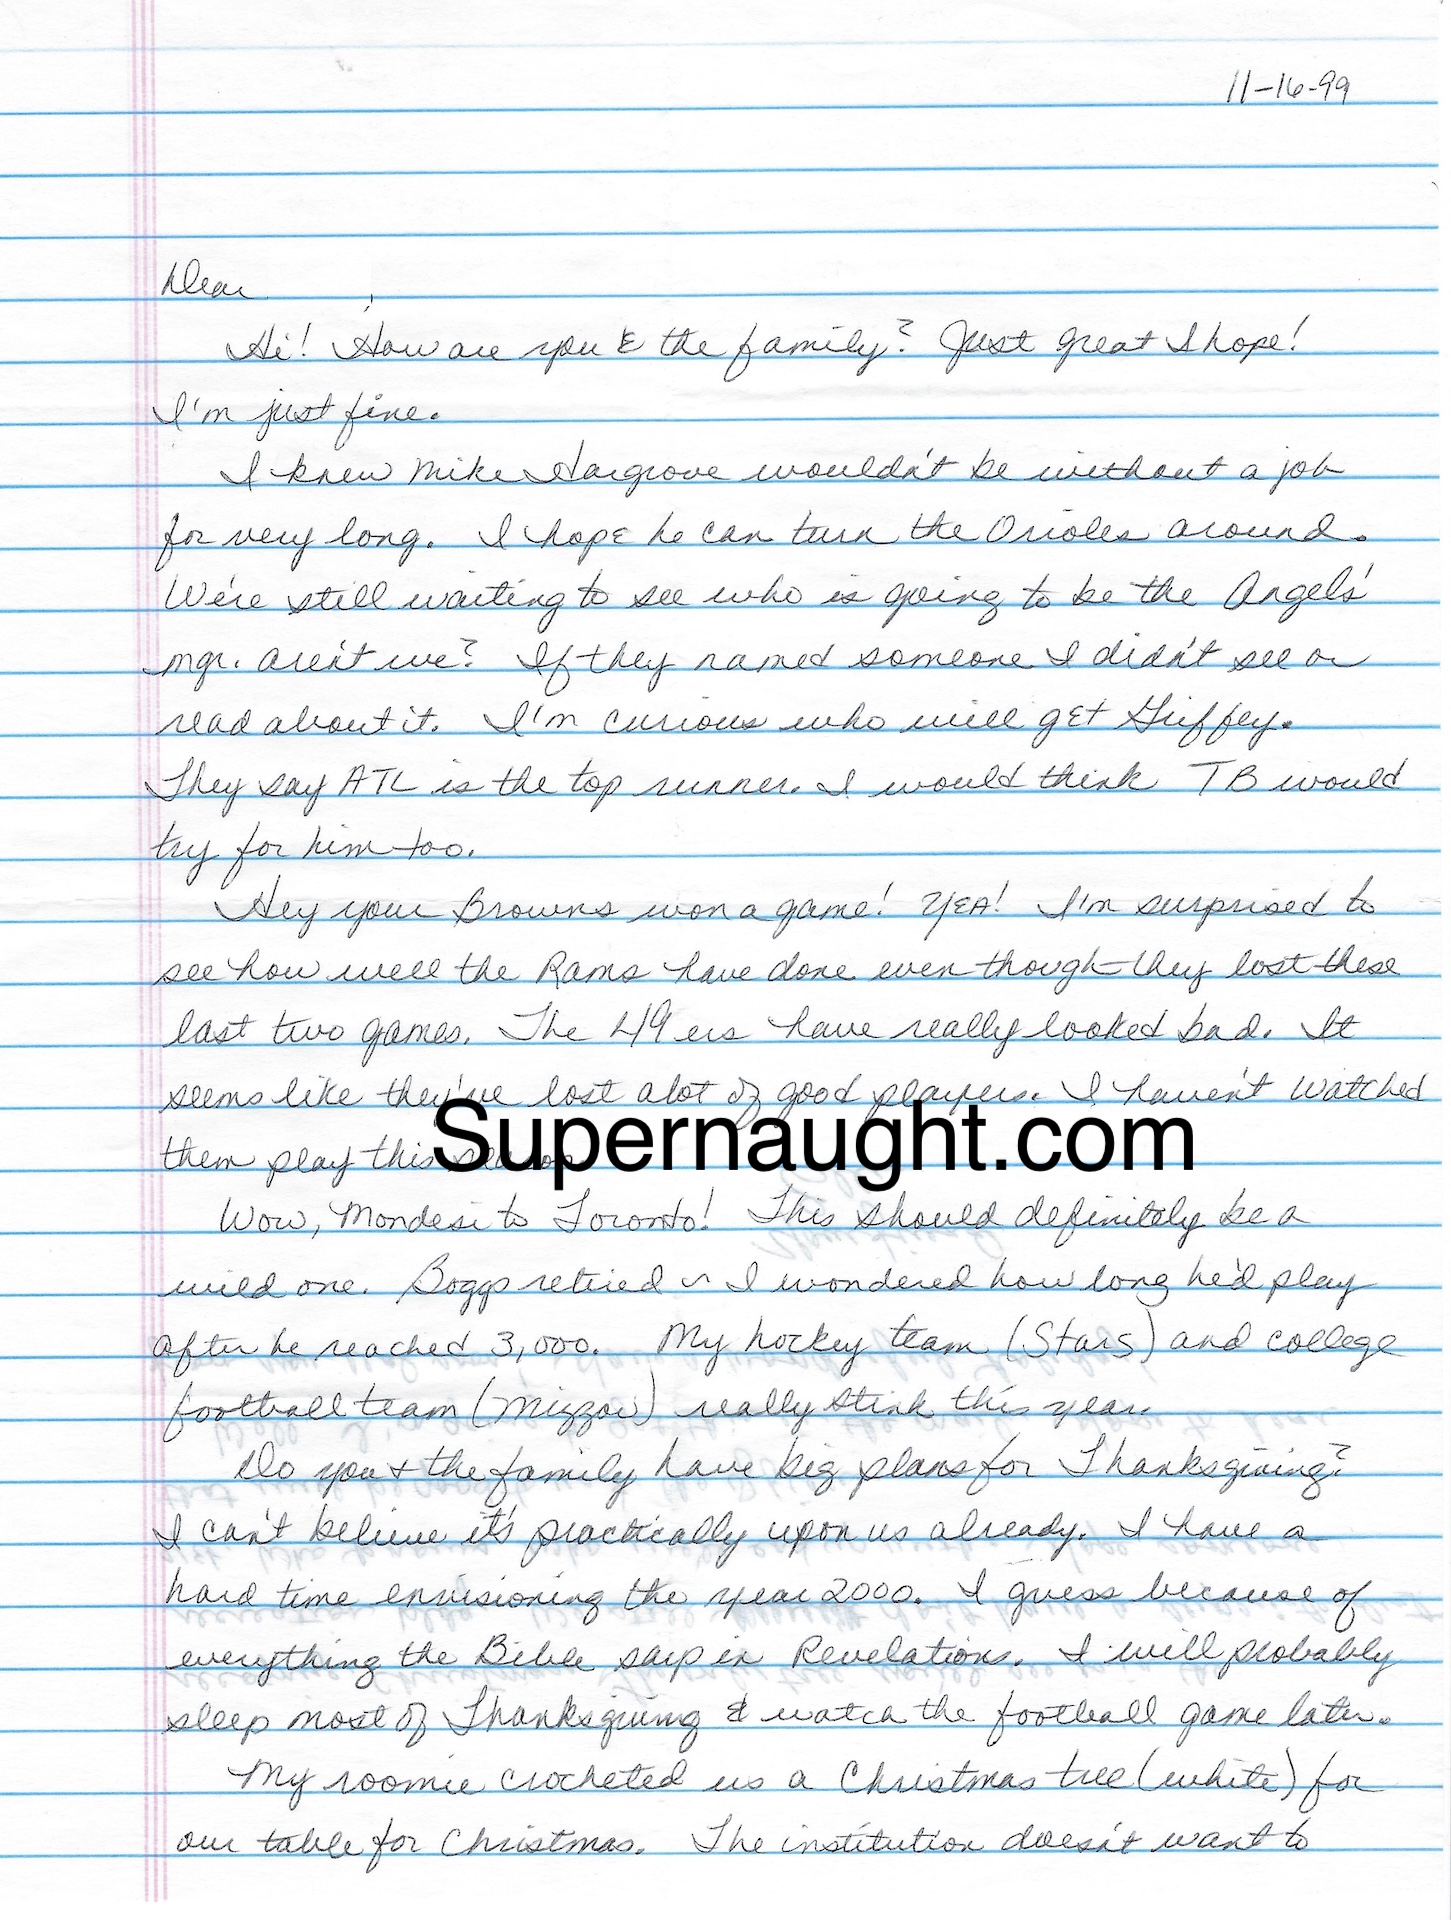 11-16-99
Dear ,
Hi! How are you & the family? Just great I hope!
I'm just fine.
I knew Mike Hargrove wouldn't be without a job
for very long. I hope he can turn the Orioles around.
We're still waiting to see who is going to be the Angels'
mgr. aren't we? If they named someone I didn't see or
read about it. I'm curious who will get Griffey.
They say ATL is the top runner. I would think TB would
try for him too.
Hey your Browns won a game! YEA! I'm surprised to
see how well the Rams have done even though they lost these
last two games. The 49ers have really looked bad. It
seems like they've lost alot of good players. I haven't watched
them play this season.
Supernaught.com
Wow, Mondesi to Toronto! This should definitely be a
wild one. Boggs retired ~ I wondered how long he'd play
after he reached 3,000. My hockey team (Stars) and college
football team (Mizzou) really stink this year.
Do you & the family have big plans for Thanksgiving?
I can't believe it's practically upon us already. I have a
hard time envisioning the year 2000. I guess because of
everything the Bible says in Revelations. I will probably
sleep most of Thanksgiving & watch the football game later.
My roomie crocheted us a Christmas tree (white) for
our table for Christmas. The institution doesn't want to